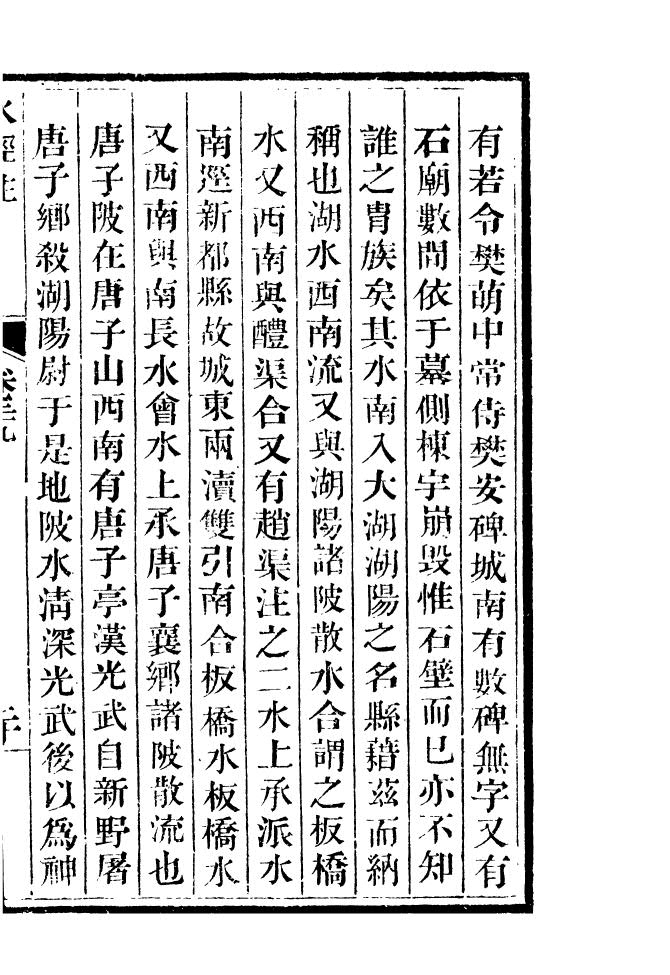 有若令樊萌中常侍樊安碑城南有數碑無字又有
石廟數間依于墓側棟宇崩毀惟石壁而已亦不知
誰之胄族矣其水南入大湖湖陽之名縣藉茲而納
稱也湖水西南流又與湖陽諸陂散水合謂之板橋
水又西南與醴渠合又有趙渠注之二水上承派水
南逕新都縣故城東兩瀆雙引南合板橋水板橋水
又西南與南長水會水上承唐子襄鄉諸陂散流也
唐子陂在唐子山西南有唐子亭漢光武自新野屠
唐子鄉殺湖陽尉于是地陂水淸深光武後以爲神
水經注